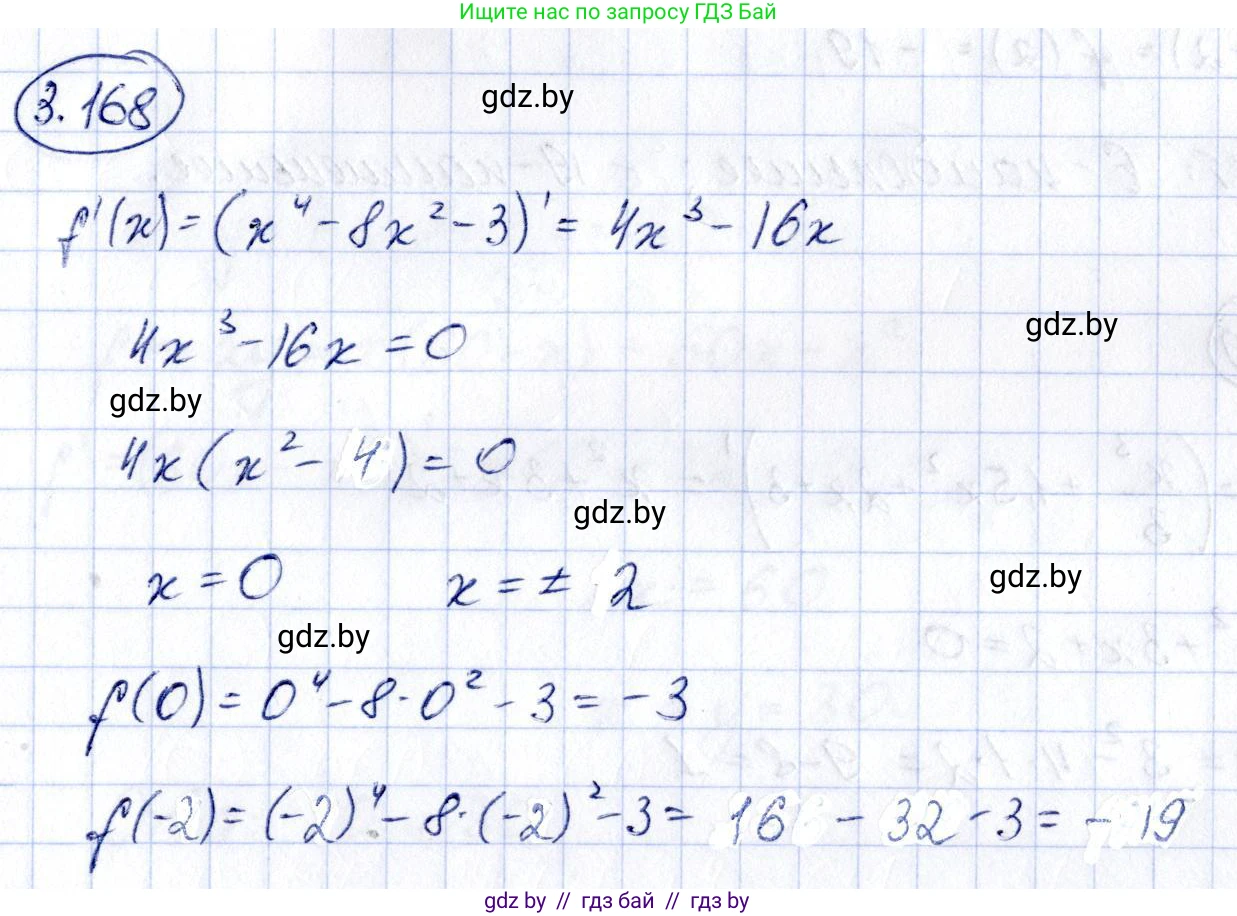 Ищите нас по запросу ГДЗ Бай
3.168
gdz.by
f'(x) = (x⁴ - 8x² - 3)' = 4x³ - 16x
gdz.by
4x³ - 16x = 0
gdz.by
4x(x² - 4) = 0
gdz.by
x = 0 x = ± 2
gdz.by
gdz.by
f(0) = 0⁴ - 8·0² - 3 = -3
f(-2) = (-2)⁴ - 8·(-2)² - 3 = 16 - 32 - 3 = -19
gdz.by // гдз бай // гдз by